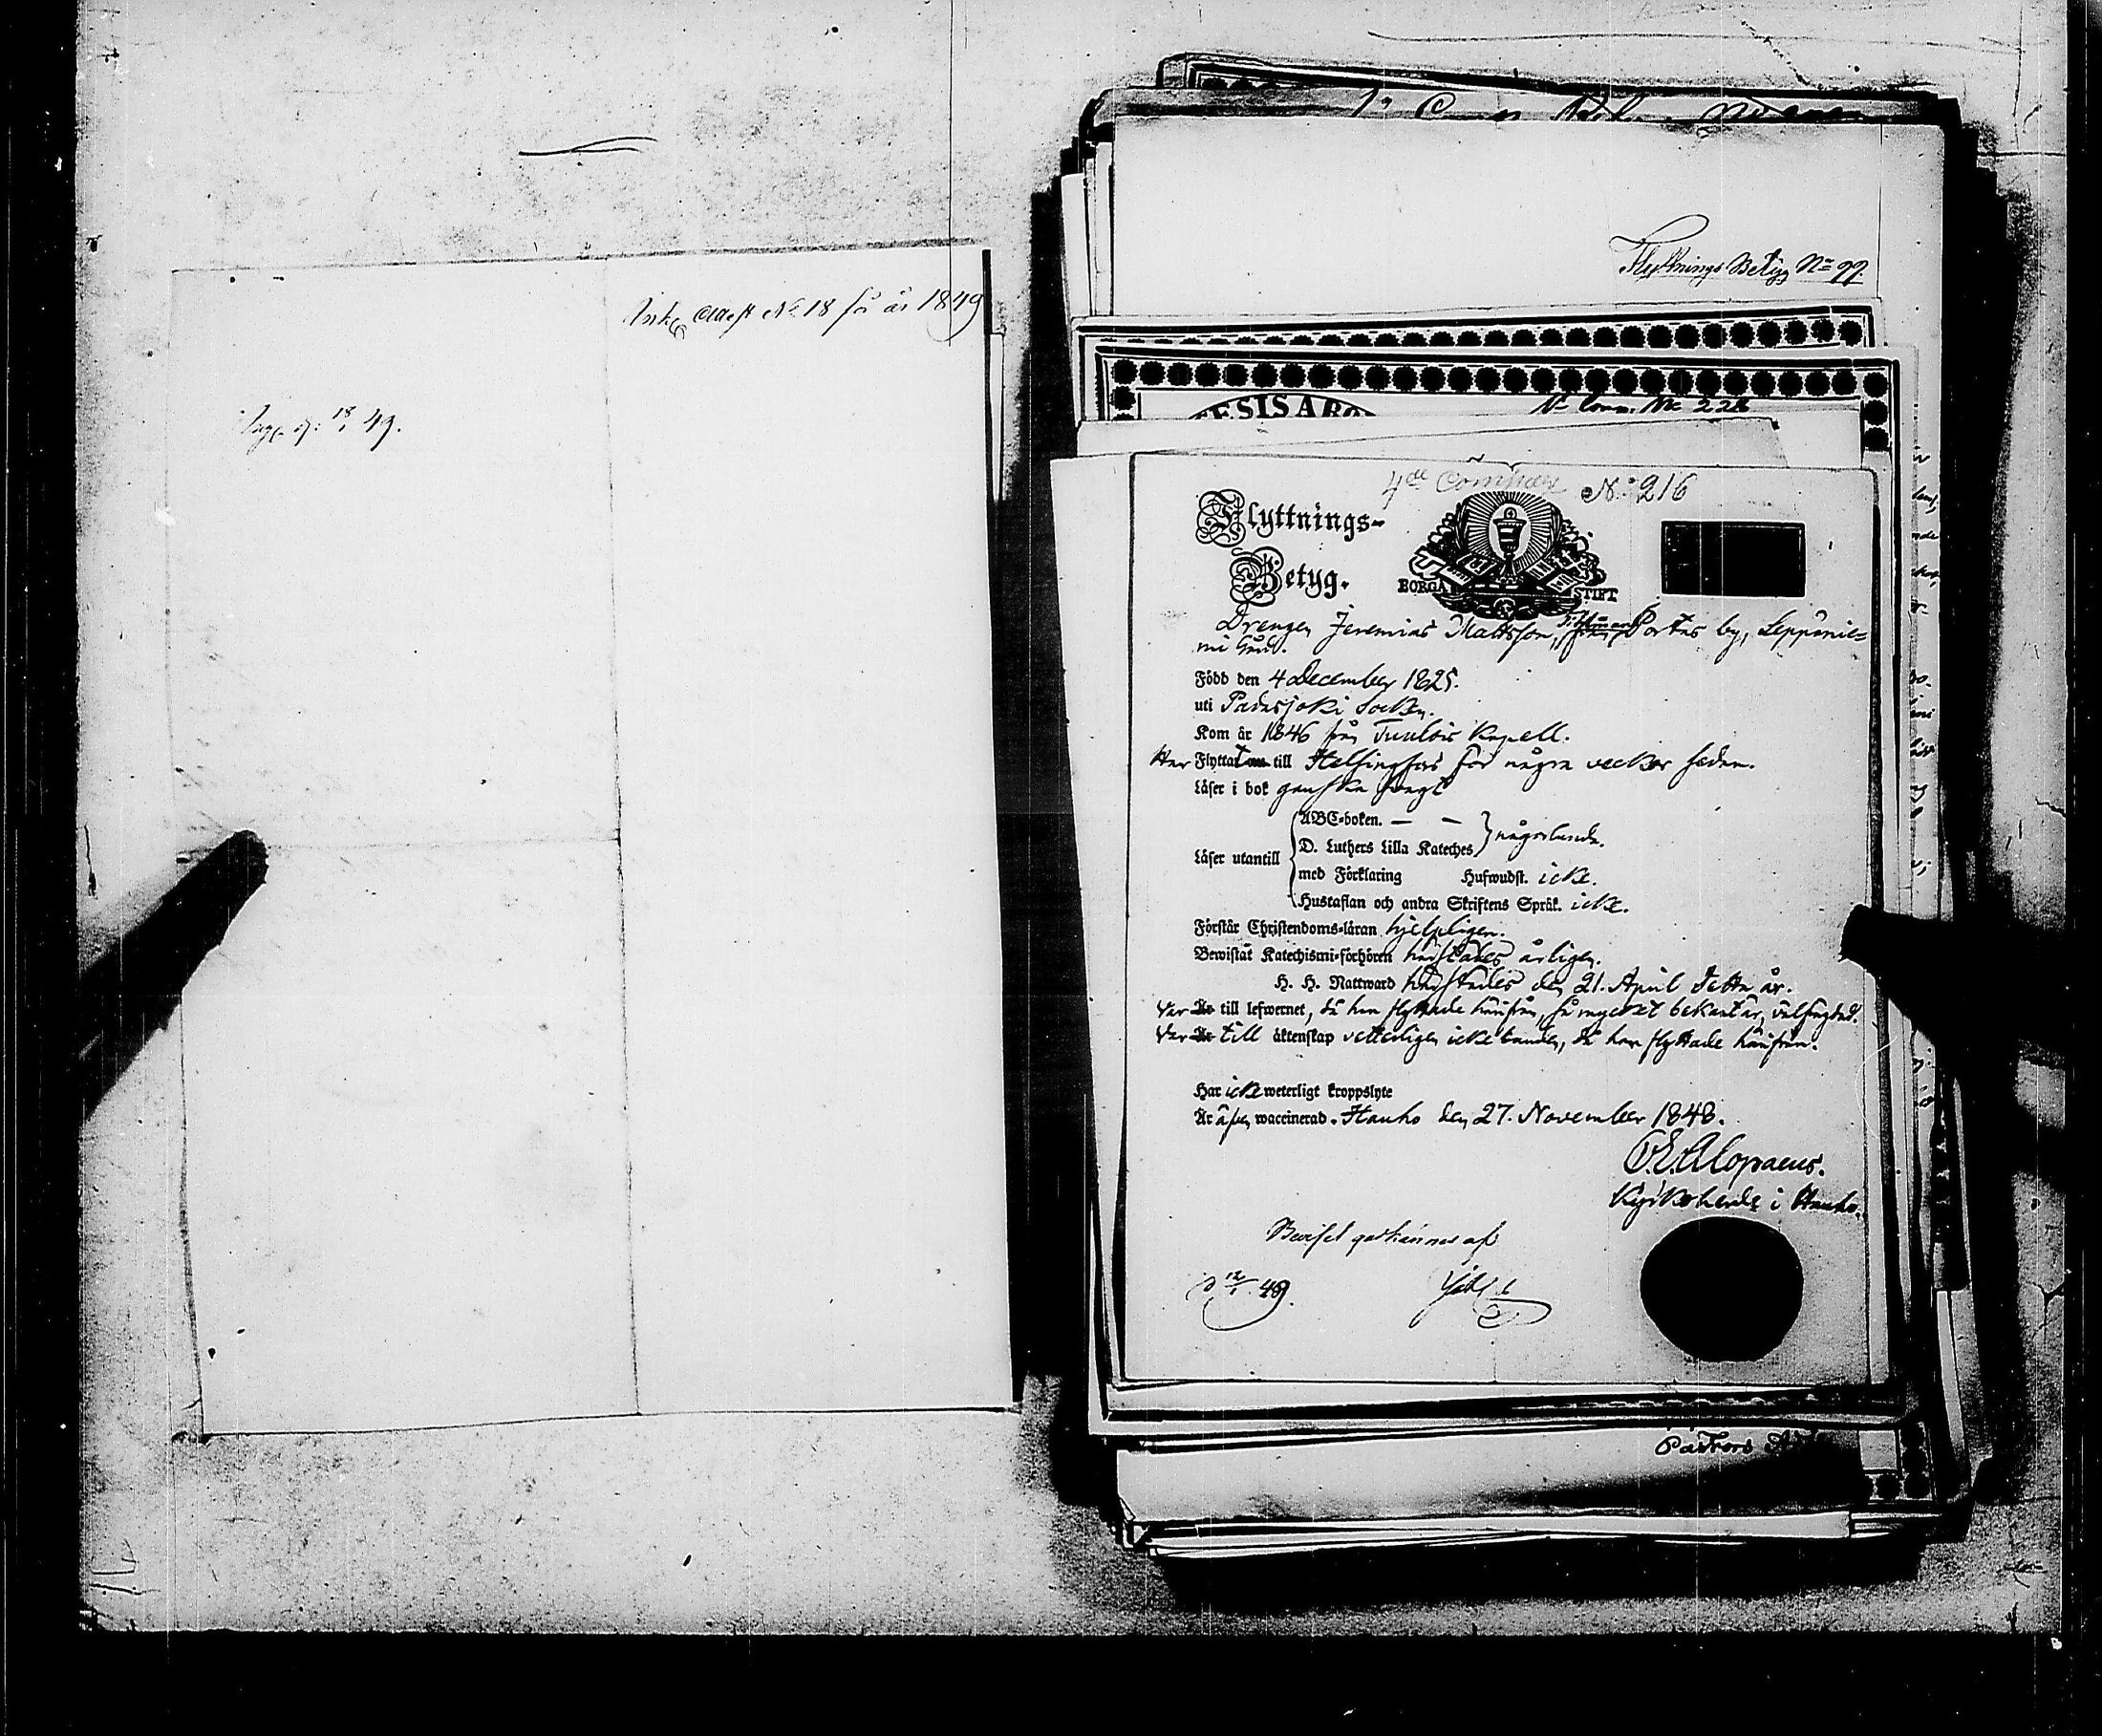 Attest № 18 för år 1849
18/1 49.
Flyttnings Betyg № 99.
№ 228
4de Compan № 216
Flyttnings-
Betyg.
BORGÅ STIFT
Drengen Jeremias Mattsson, från Portas by, Leppänie=
mi
Född den 4 December 1825.
uti Padasjoki Socken.
Kom år 1846 från Tuulois Kapell.
Har Flyttat till Helsingfors för några veckor sedan.
Läser i bok ganska trögt
Läser utantill
ABC-boken. — —
D. Luthers Lilla Kateches } någorlunda.
med Förklaring Hufwudst. icke.
Hustaflan och andra Skriftens Språk. icke.
Förstår Christendoms-läran hjelpligen.
Bewistat Katechismi-förhören härstädes årligen.
H. H. Nattward härstädes den 21. April detta år.
Var till lefwernet, då han flyttade härifrån, så mycket bekant är, välfrägdad.
Var till äktenskap vetterligen icke bunden, då han flyttade härifrån.
Har icke weterligt kroppslyte
Är äfven waccinerad. Hauho den 27. November 1848.
Alopaeus.
Kyrkoherde i Hauho.
Beviset godkännes af
d 12/1 49.
Pastors